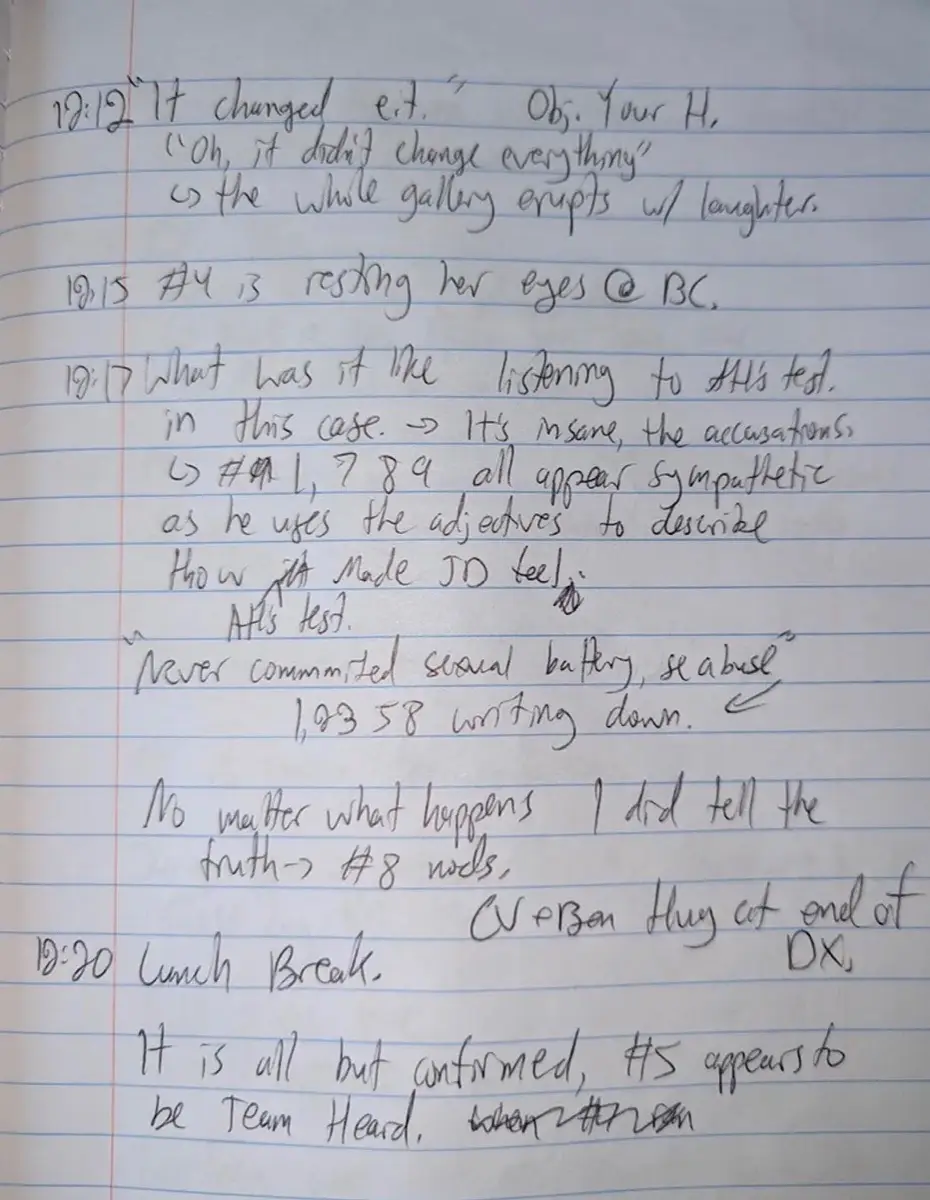 12:12 "It changed e.t." Obj. Your H.
"Oh, it didn't change everything"
↳ the whole gallery erupts w/ laughter.
12:15 #4 is resting her eyes @ BC.
12:17 What was it like listening to AH's test.
in this case. → It's insane, the accusations.
↳ # 1, 7 8 9 all appear sympathetic
as he uses the adjectives to describe
how it made JD feel.
AH's test.
"Never commmited sexual battery, se abuse"
1,2358 writing down. ↙
No matter what happens I did tell the
truth → #8 nods.
CV + Ben Hug at end of
DX.
12:20 Lunch Break.
It is all but confirmed, #5 appears to
be Team Heard.